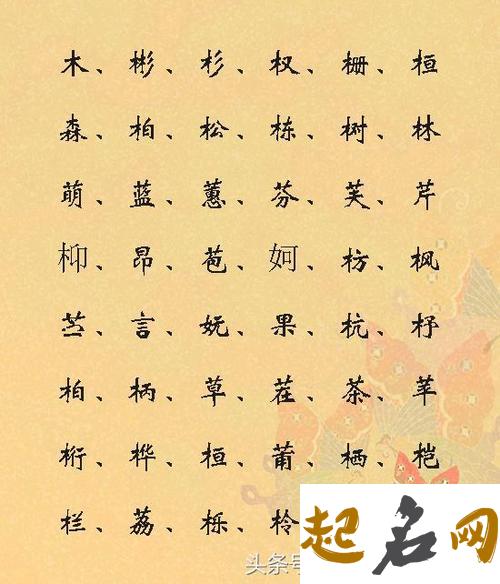 木、彬、杉、杈、栅、桓
森、柏、松、栋、树、林
萌、蓝、蕙、芬、芙、芹
枊、昂、苞、妸、枋、枫
苎、言、妩、果、杭、杼
柏、柄、草、茬、茶、苹
桁、桦、桓、莆、栖、桤
栏、荔、栎、柃
起名网
头条号